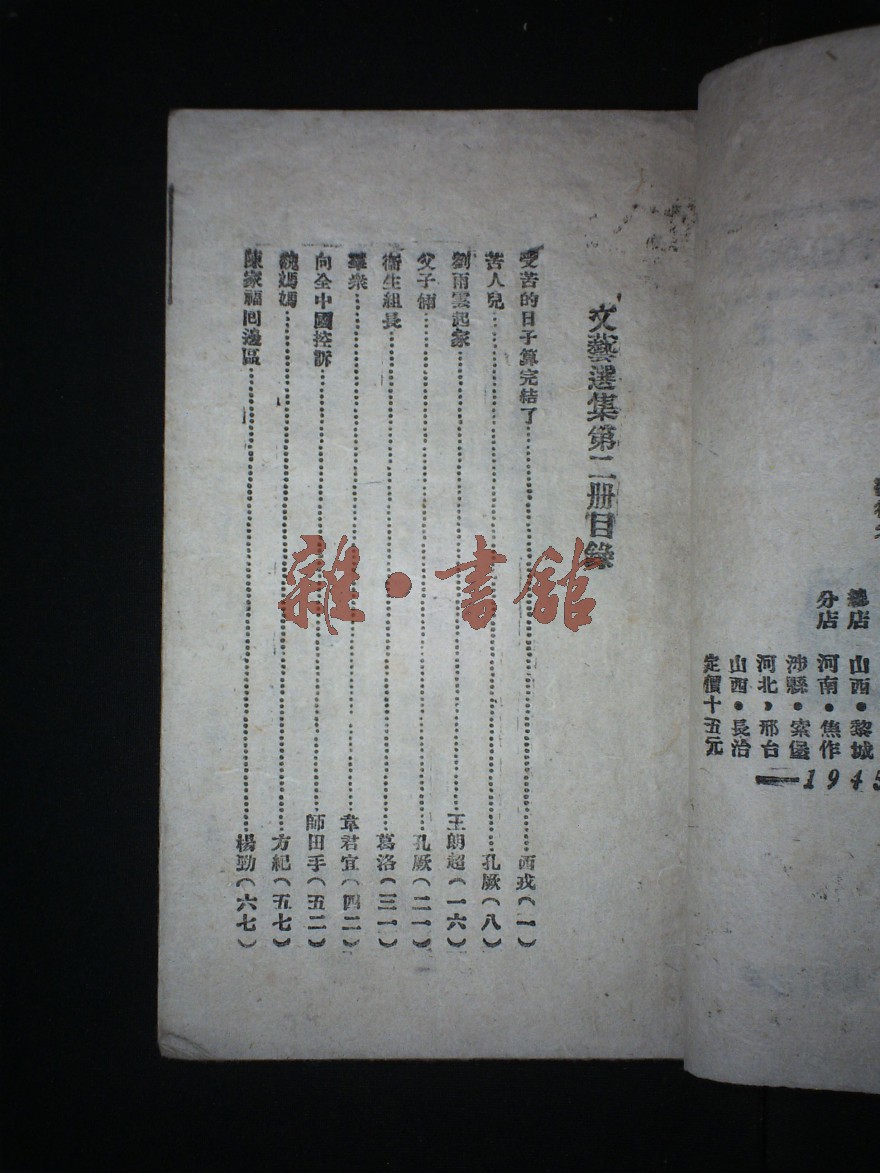 總店 山西●黎城
分店 河南●焦作
涉縣●索堡
河北●邢台
山西●長治
定價十五元
1945
文藝選集第二册目錄
受苦的日子算完結了 西戎(一)
苦人兒 孔厥(八)
劉雨雲起家 王朗超(一六)
父子倆 孔厥(二一)
衞生組長 葛洛(三一)
羣衆 韋君宜(四二)
向全中國控訴 師田手(五二)
魏媽媽 方紀(五七)
陳家福回邊區 楊勁(六七)
雜·書館